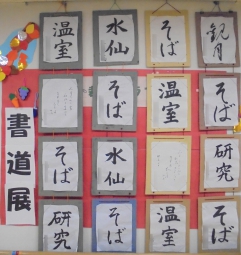 温室
水仙
そば
観月
そば
温室
そば
そば
水仙
研究
研究
そば
温室
そば
書道展